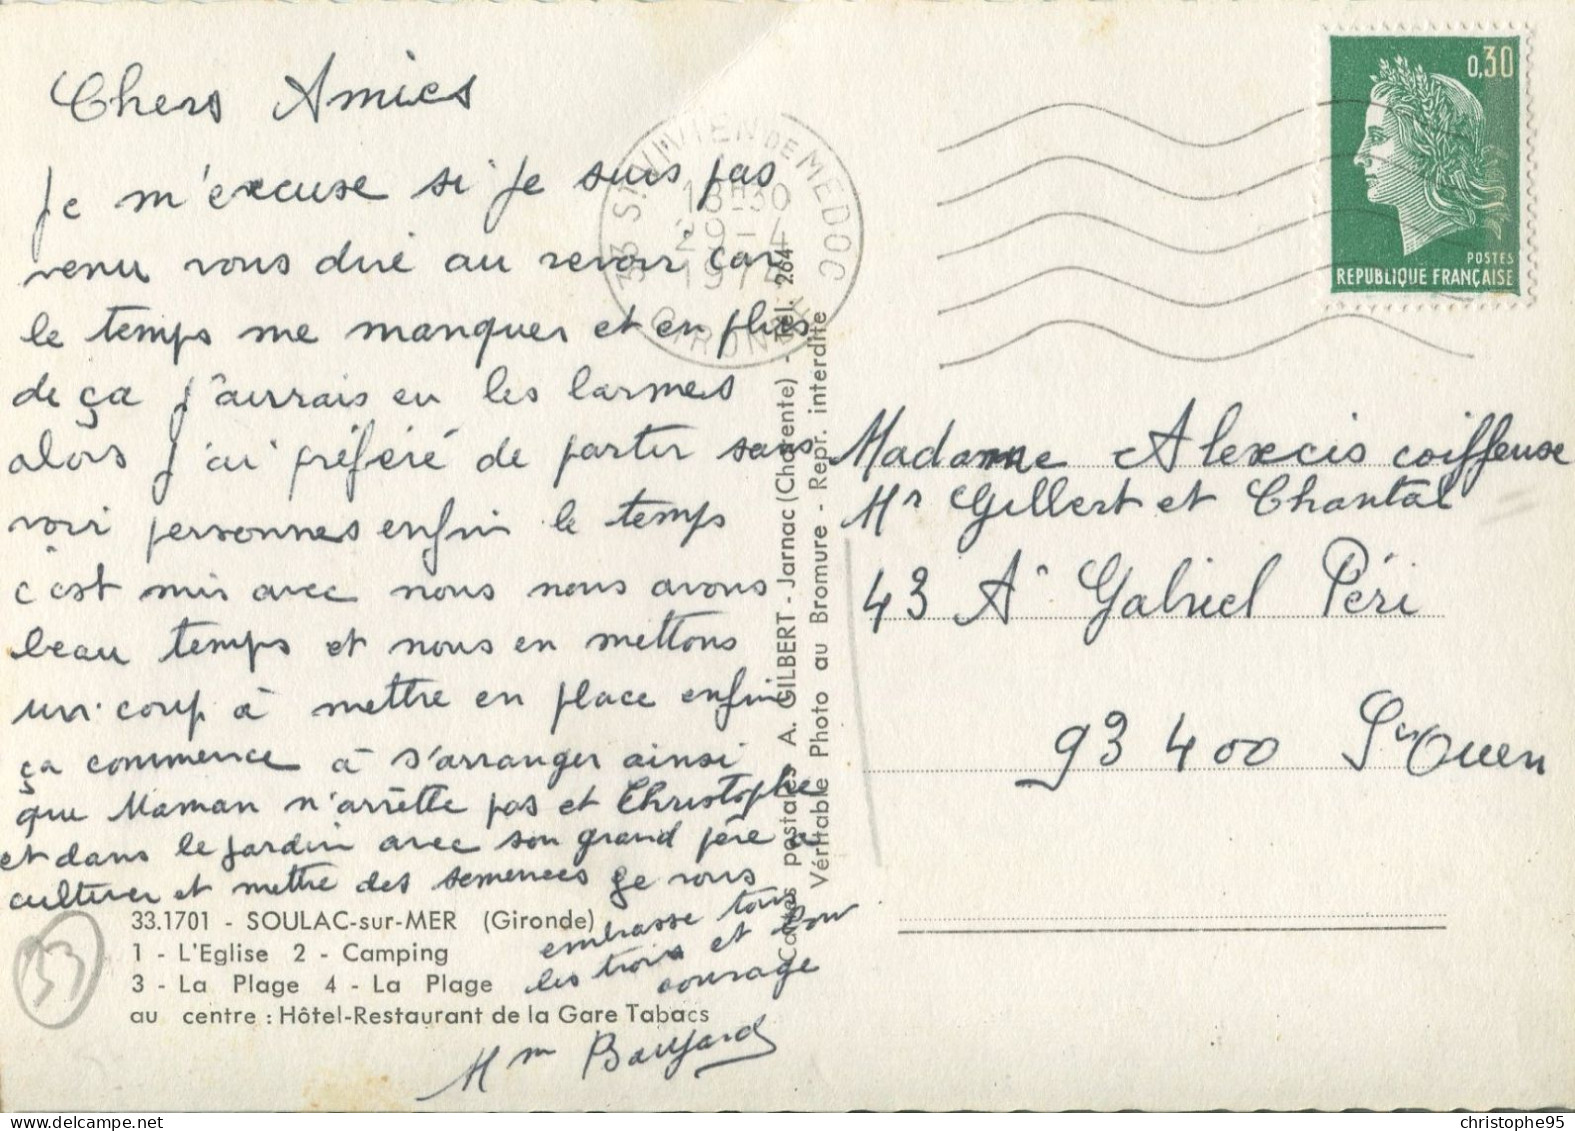 Chers Amies
Je m'excuse si je suis pas
venu vous dire au revoir car
le temps me manquer et en plus
de ça j'aurrais eu les larmes
alors j'ai préféré de partir sans
voir personnes enfin le temps
c'est mis avec nous nous avons
beau temps et nous en mettons
un coup à mettre en place enfin
ça commence à s'arranger ainsi
que Maman n'arrètte pas et Christophe
et dans le jardin avec son grand père a
cultiver et mettre des semences je vous
embrasse tous
les trois et bon
courage
Mm Baujard
33.1701 - SOULAC-sur-MER (Gironde)
1 - L'Eglise 2 - Camping
3 - La Plage 4 - La Plage
au centre : Hôtel-Restaurant de la Gare Tabacs
53
Cartes postales A. GILBERT - Jarnac (Charente) - Tel. 264
Véritable Photo au Bromure - Repr. interdite
33 ST VIVIEN DE MEDOC
18H30
29-4
GIRONDE
0,30
POSTES
REPUBLIQUE FRANÇAISE
Madame Alexcis coiffeuse
Mr Gillert et Chantal
43 A. Gabriel Péri
93400 St Ouen
christophe95